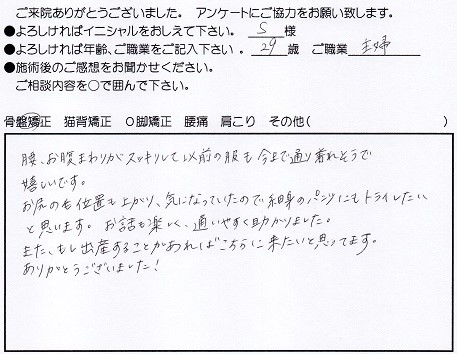 ご来院ありがとうございました。 アンケートにご協力をお願い致します。
●よろしければイニシャルをおしえて下さい。 S 様
●よろしければ年齢、ご職業をご記入下さい。 29 歳 ご職業 主婦
●施術後のご感想をお聞かせください。
ご相談内容を○で囲んで下さい。
骨盤矯正 猫背矯正 O脚矯正 腰痛 肩こり その他( )
腰、お腹まわりがスッキリして以前の服も今まで通り着れそうで
嬉しいです。
お尻の位置も上がり、気になっていたので細身のパンツにもトライしたい
と思います。お話も楽しく、通いやすく助かりました。
また、もし出産することがあればこちらに来たいと思ってます。
ありがとうございました!